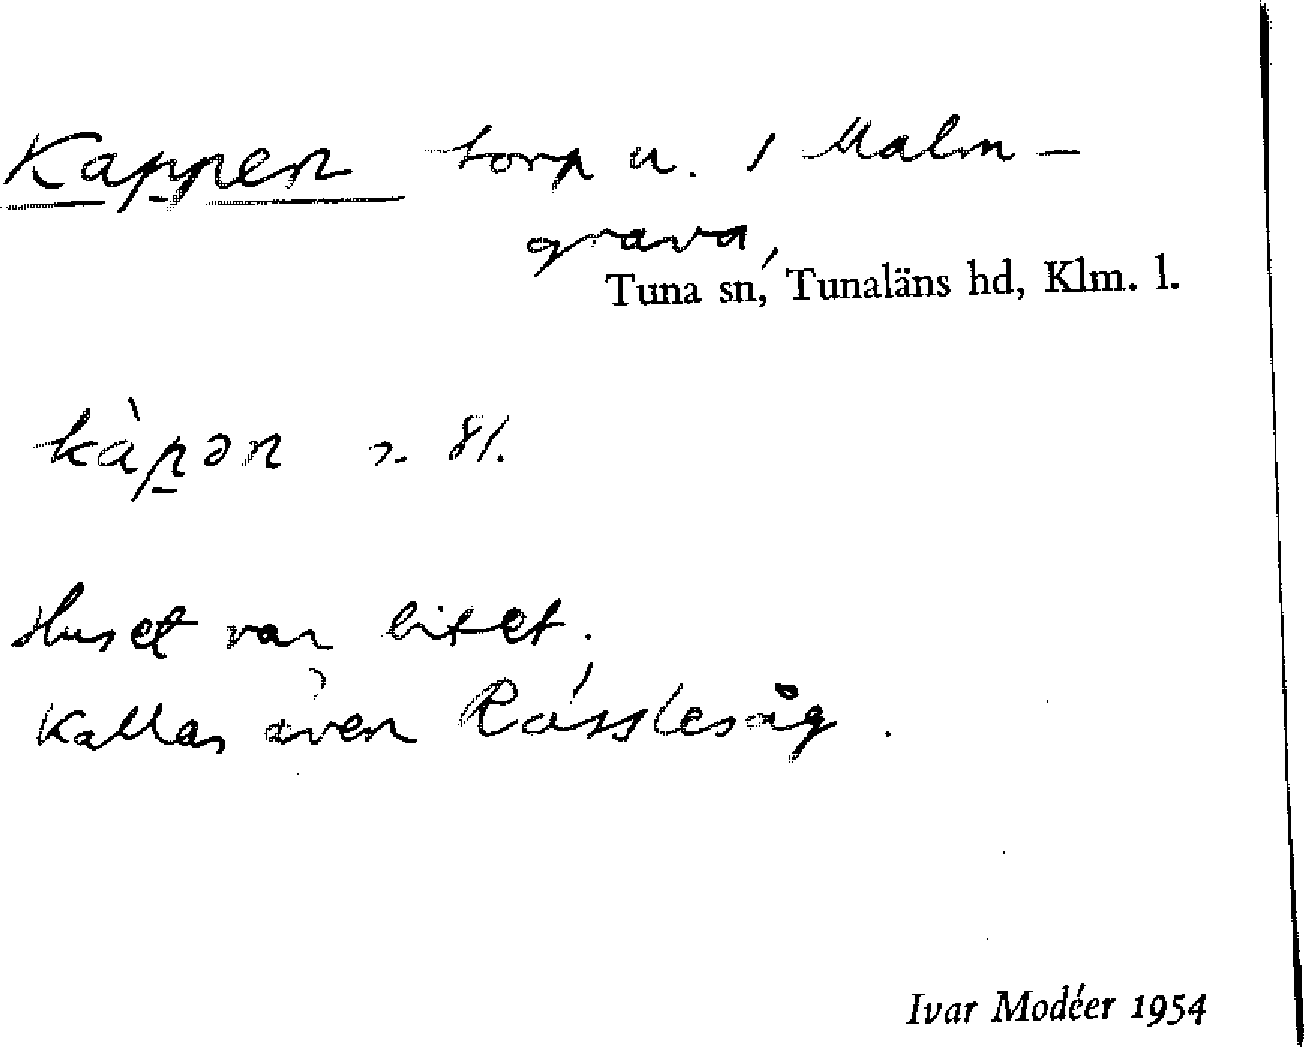 Kappen torp u. 1 Malm-
grava,
Tuna sn, Tunaläns hd, Klm. l.
kàpən 81.
Huset var litet.
Kallas även Rósslesåg.
Ivar Modéer 1954